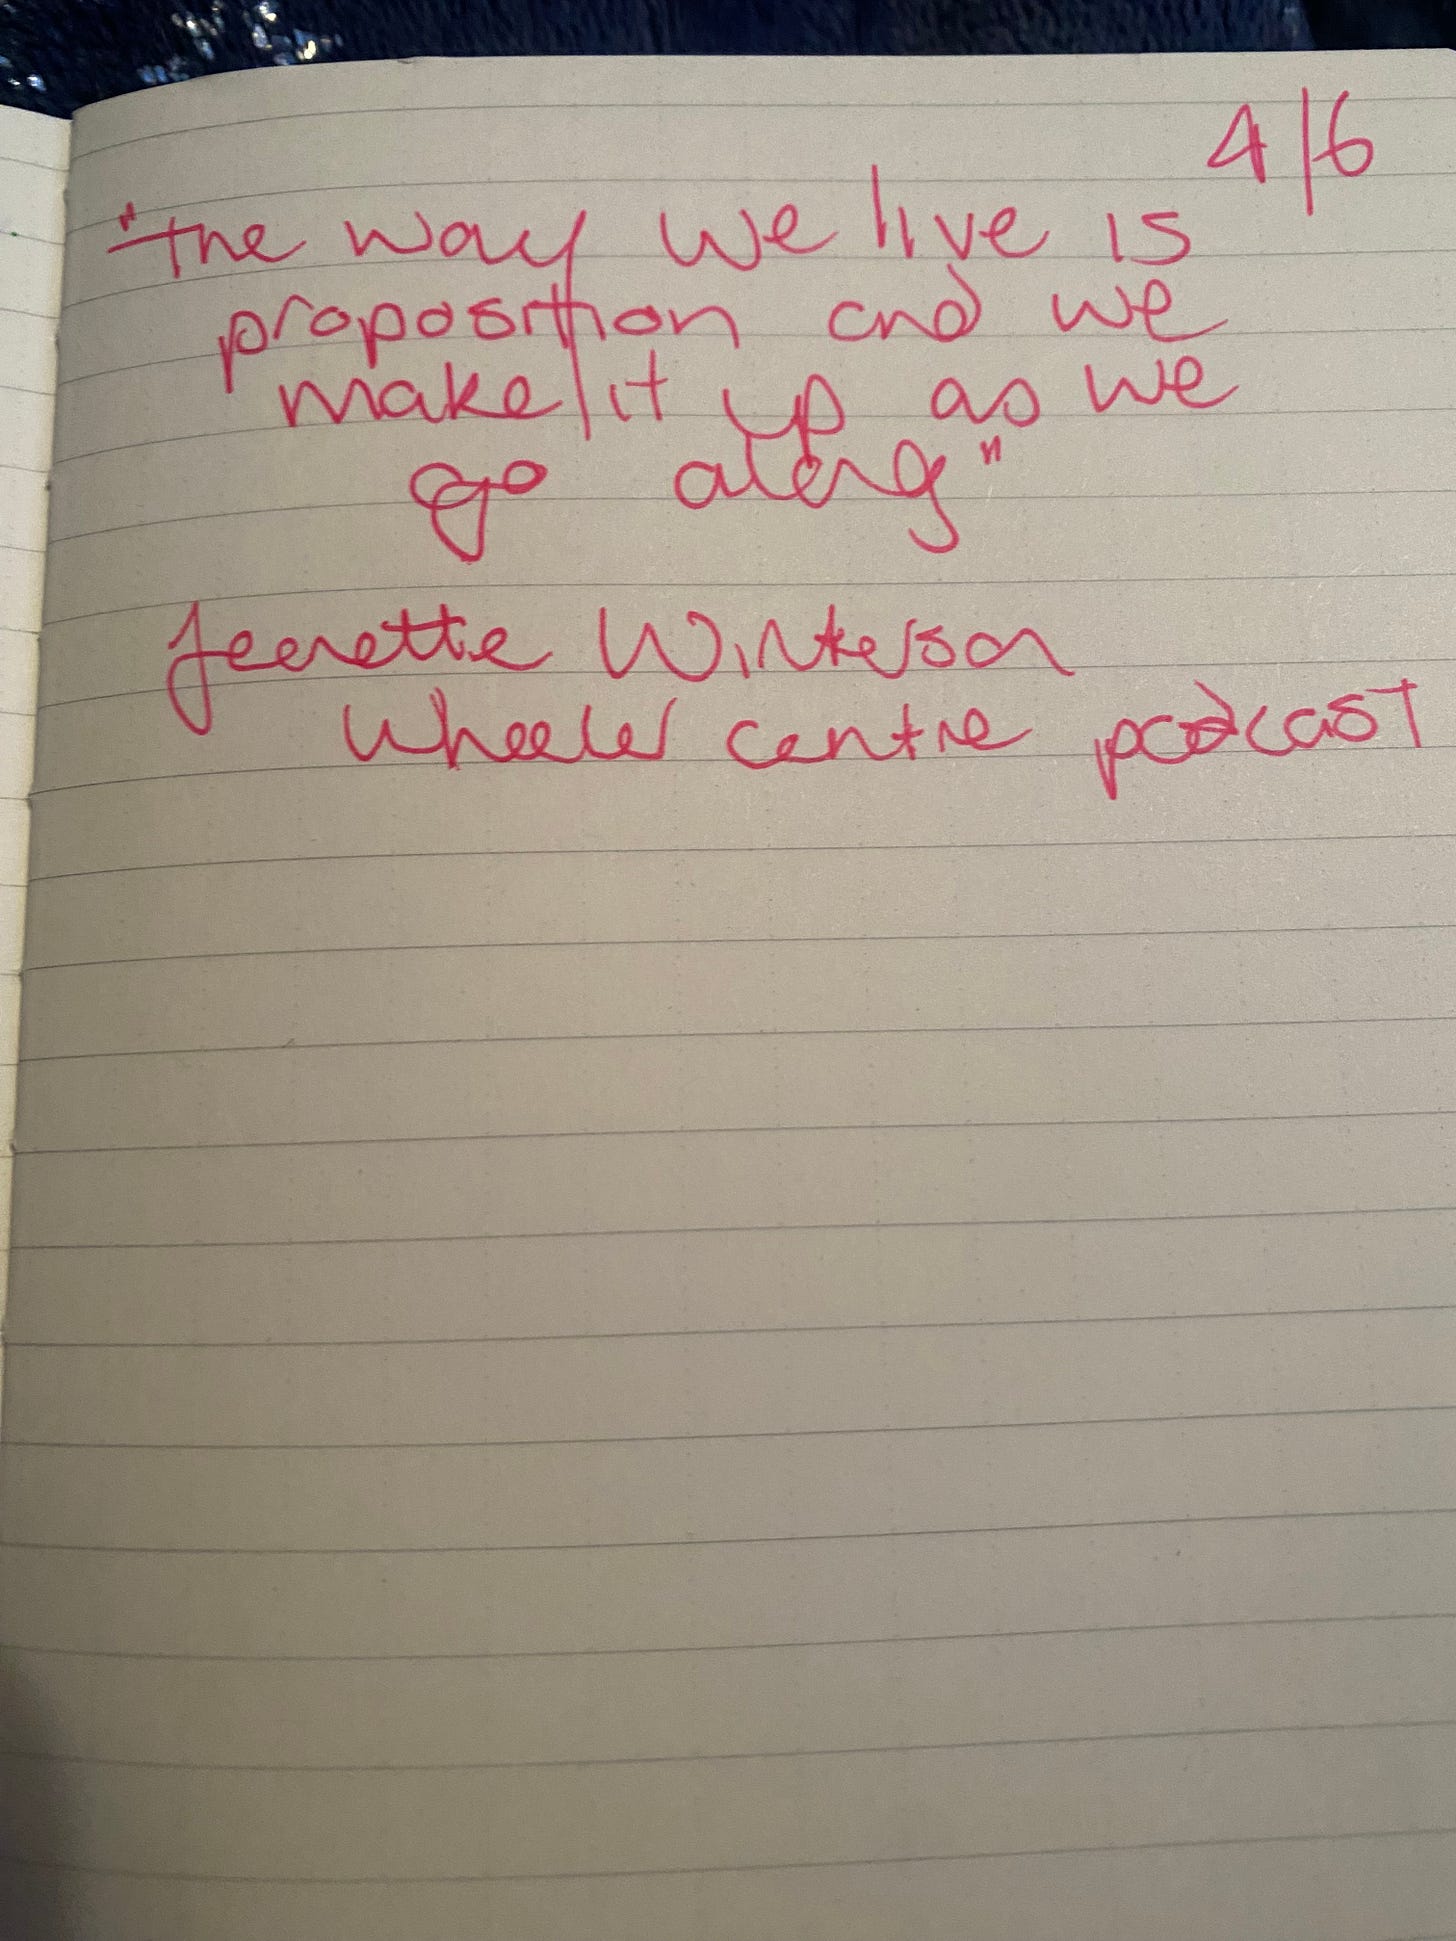 4/6
"The way we live is
proposition and we
make it up as we
go along"
Jeenette Winterson
Wheeler centre podcast